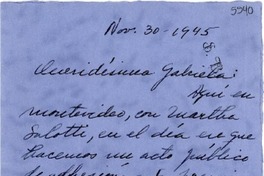 5540
Nov. 30-1945
Queridísima Gabriela:
Aquí en
montevideo, con Martha
Salotti, en el día en que
hacemos un acto público